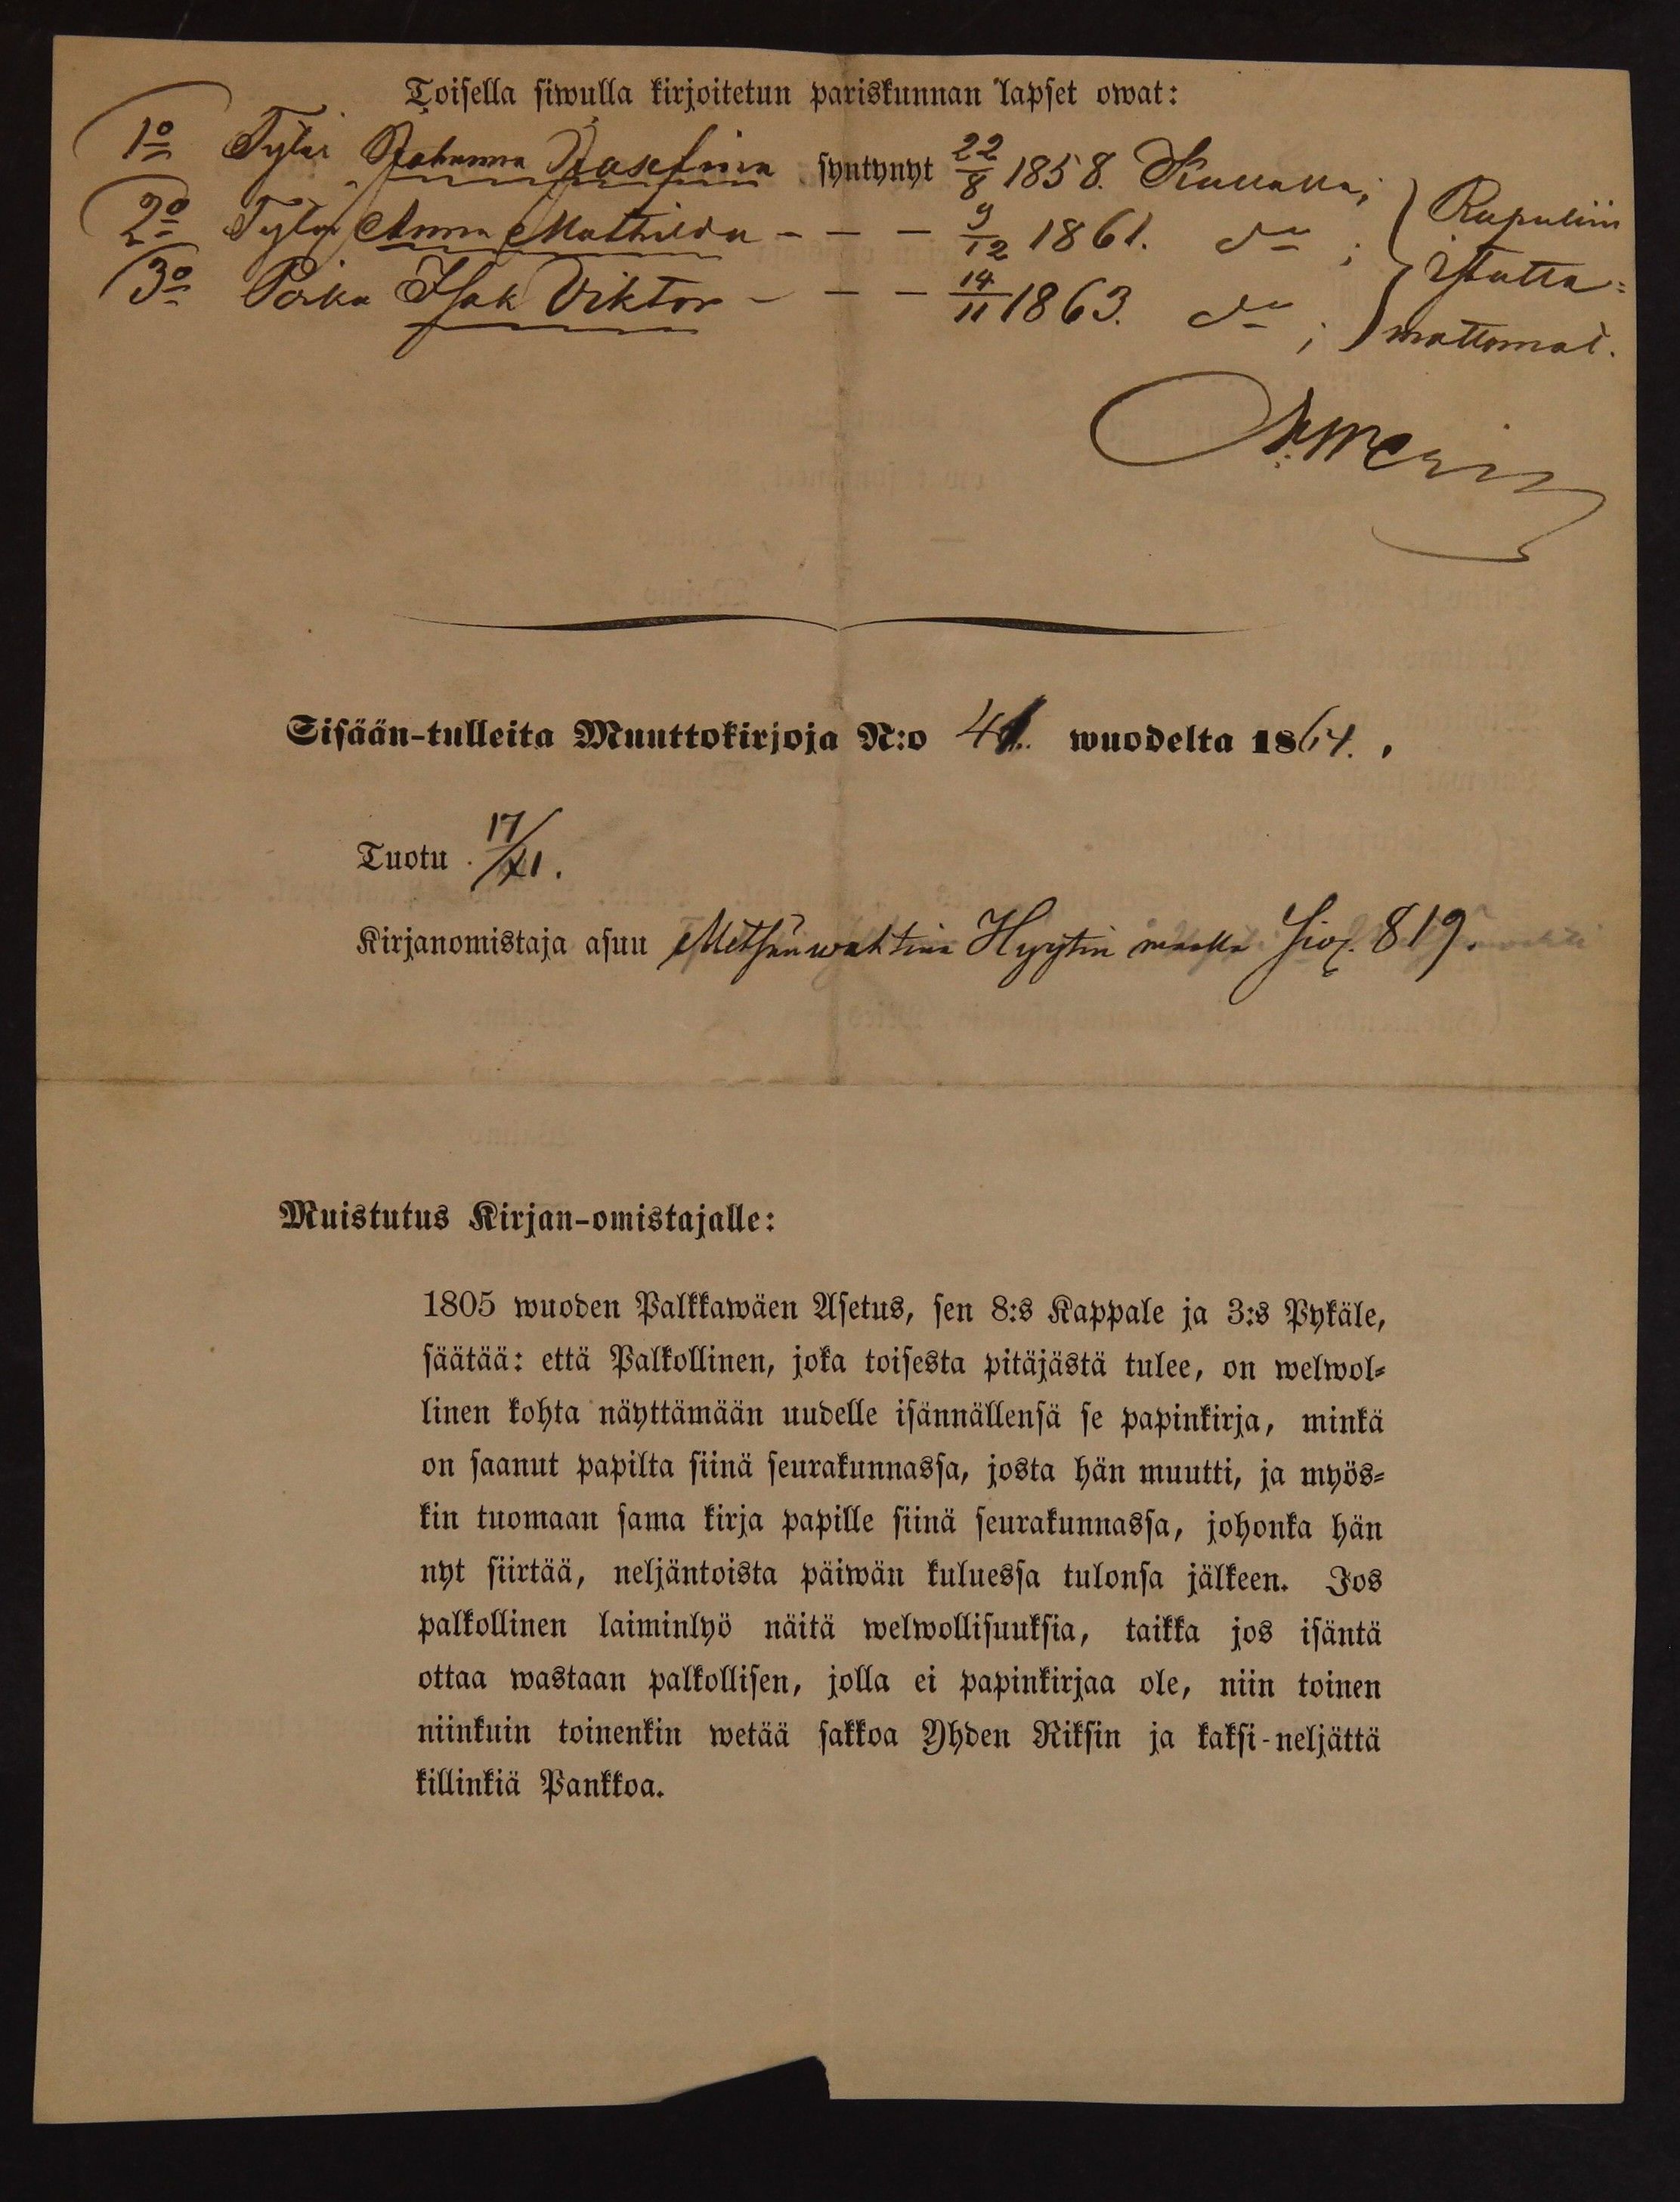 Toisella siwulla kirjoitetun pariskunnan lapset owat:
1o Tytär Johanna Josefina syntynyt 22/8 1858. Kullalla;
2o Tytär Anna Mathilda - - - 9/12 1861. do ;
3o Poika Isak Viktor - - - 14/11 1863. do ;
Rupuliin
istutta=
mattomat.
Sisään-tulleita Muuttokirjoja N:o 41. wuodelta 1864.
Tuotu 17/XI.
Kirjanomistaja asuu Metsänwahtina Hyrytin maalla Siv. 819.
Muistutus Kirjan-omistajalle:
1805 wuoden Palkkawäen Asetus, sen 8:s Kappale ja 3:s Pykäle,
säätää: että Palkollinen, joka toisesta pitäjästä tulee, on welwol=
linen kohta näyttämään uudelle isännällensä se papinkirja, minkä
on saanut papilta siinä seurakunnassa, josta hän muutti, ja myös=
kin tuomaan sama kirja papille siinä seurakunnassa, johonka hän
nyt siirtää, neljäntoista päiwän kuluessa tulonsa jälkeen. Jos
palkollinen laiminlyö näitä welwollisuuksia, taikka jos isäntä
ottaa wastaan palkollisen, jolla ei papinkirjaa ole, niin toinen
niinkuin toinenkin wetää sakkoa Yhden Riksin ja kaksi-neljättä
killinkiä Pankkoa.